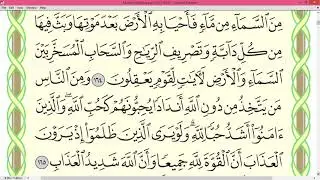 مِنَ ٱلسَّمَآءِ مِن مَّآءٍ فَأَحْيَا بِهِ ٱلْأَرْضَ بَعْدَ مَوْتِهَا وَبَثَّ فِيهَا
مِن كُلِّ دَآبَّةٍ وَتَصْرِيفِ ٱلرِّيَٰحِ وَٱلسَّحَابِ ٱلْمُسَخَّرِ بَيْنَ
ٱلسَّمَآءِ وَٱلْأَرْضِ لَءَايَٰتٍ لِّقَوْمٍ يَعْقِلُونَ ١٦٤ وَمِنَ ٱلنَّاسِ
مَن يَتَّخِذُ مِن دُونِ ٱللَّهِ أَندَادًا يُحِبُّونَهُمْ كَحُبِّ ٱللَّهِ وَٱلَّذِينَ
ءَامَنُوٓا۟ أَشَدُّ حُبًّا لِّلَّهِ وَلَوْ يَرَى ٱلَّذِينَ ظَلَمُوٓا۟ إِذْ يَرَوْنَ
ٱلْعَذَابَ أَنَّ ٱلْقُوَّةَ لِلَّهِ جَمِيعًا وَأَنَّ ٱللَّهَ شَدِيدُ ٱلْعَذَابِ ١٦٥